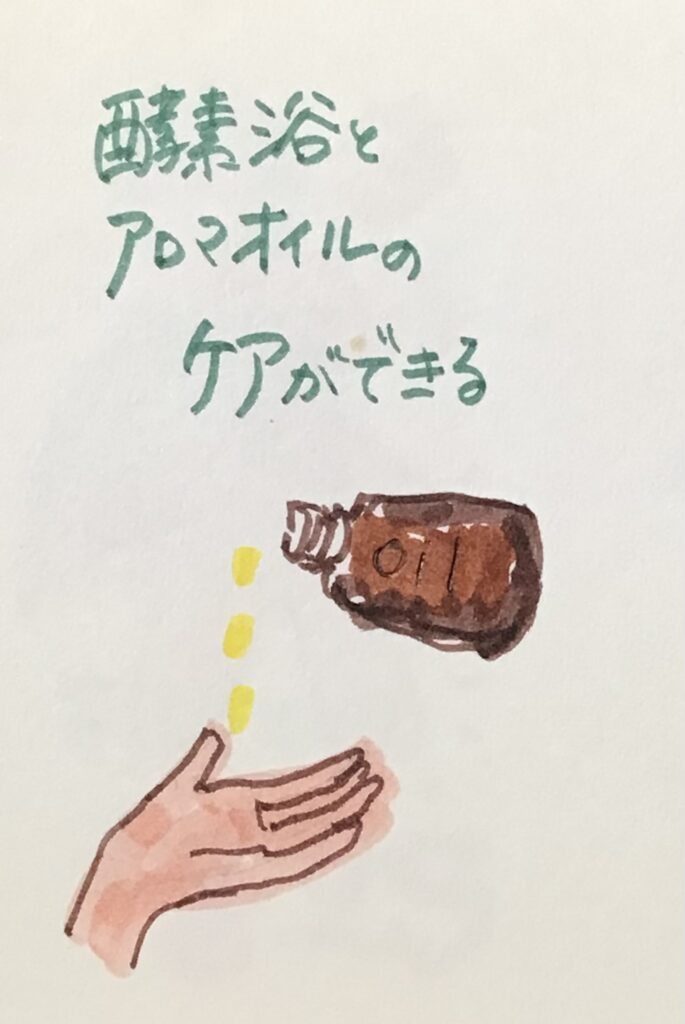 酵素浴と
アロマオイルの
ケアができる
oil